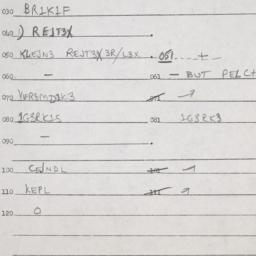 030 BR1K1F
040 ) RE1T3X .
050 KLEJN3 REJT3X 3R/L3X . 051 +
060 - 061 - BUT PELCH
070 071
080 1G3RK1S 081 1G3RK3
090 - .
100 101
110 KEPL 111
120 0